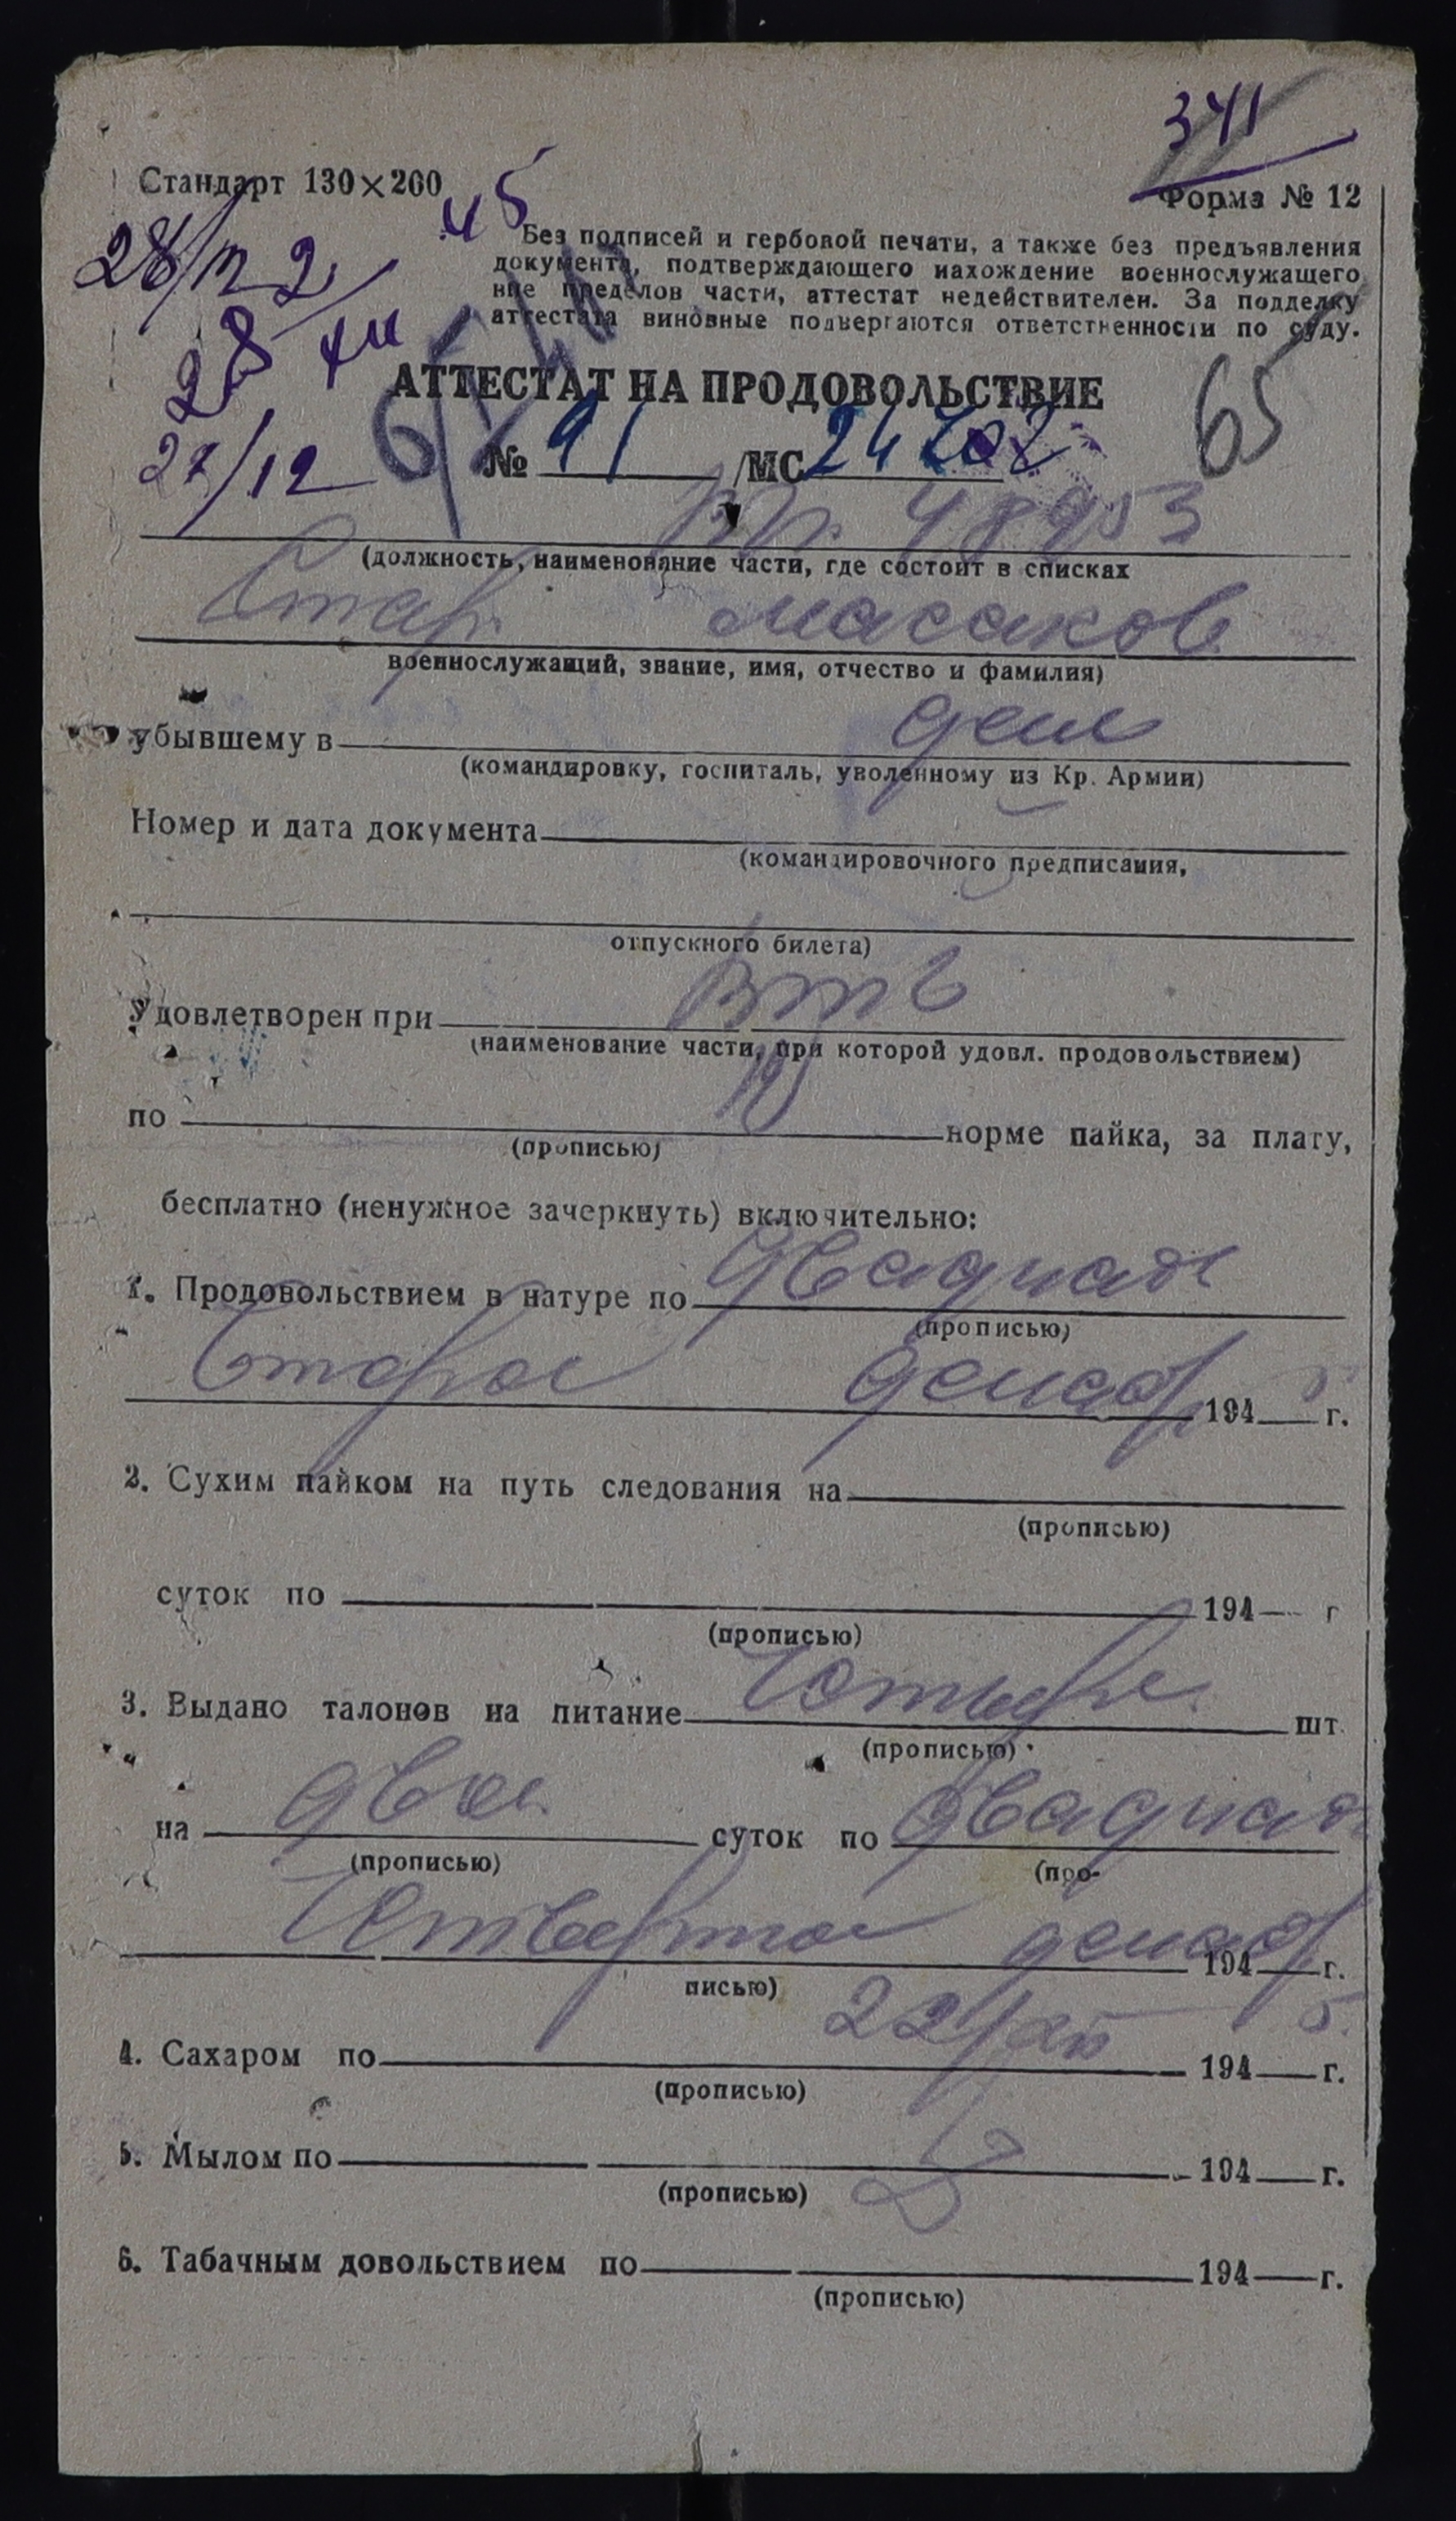 341
Стандарт 130×200
Форма № 12
45
28/12 2
Без подписей и гербовой печати, а также без предъявления
документа, подтверждающего нахождение военнослужащего
вне пределов части, аттестат недействителен. За подделку
аттестата виновные подвергаются ответственности по суду.
28 XII
АТТЕСТАТ НА ПРОДОВОЛЬСТВИЕ
65
27/12
№ 91 /МС
48953
(должность, наименование части, где состоит в списках
Стар. Масаков
военнослужащий, звание, имя, отчество и фамилия)
убывшему в дем
(командировку, госпиталь, уволенному из Кр. Армии)
Номер и дата документа
(командировочного предписания,
отпускного билета)
Удовлетворен при
(наименование части, при которой удовл. продовольствием)
по
(прописью)
норме пайка, за плату,
бесплатно (ненужное зачеркнуть) включительно:
1. Продовольствием в натуре по двадцать
(прописью)
второе декабр 194 5 г.
2. Сухим пайком на путь следования на
(прописью)
суток по 194 г
(прописью)
3. Выдано талонов на питание четыре шт.
(прописью)
на двое суток по двадцать
(прописью)
(про-
четвертое декабр 194 5 г.
писью)
4. Сахаром по 22/XII 194 г.
(прописью)
5. Мылом по 194 г.
(прописью)
6. Табачным довольствием по 194 г.
(прописью)